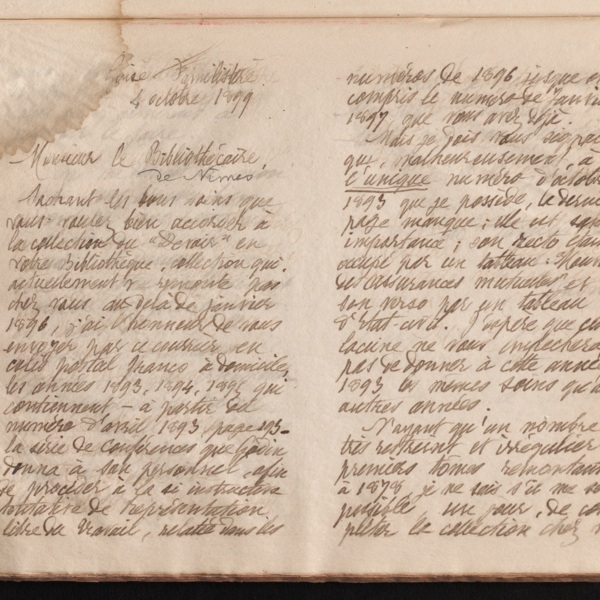 Familistère
4 octobre 1899
Monsieur le Bibliothécaire,
de Nîmes
Sachant les bons soins que
vous voulez bien accorder à
la collection du "Devoir" en
votre Bibliothèque, collection qui,
actuellement remonte pas
chez vous au delà de janvier
1896, j'ai l'honneur de vous
envoyer par ce courrier en
colis postal franco à domicile,
les années 1893, 1894, 1895 qui
contiennent, – à partir du
numéro d'avril 1893, page 193 –
la série de conférences que Godin
donna à son personnel, afin
de procéder à la si instructive
tentative de représentation
libre du travail, relatée dans les
numéros de 1896 jusque
compris le numéro de janvier
1897 que vous avez déjà.
Mais je dois vous
que, malheureusement, à
l'unique numéro d'octobre
1893 que je possède, la
page manque ; elle est
importance ; son recto
occupé par un tableau
des assurances mutuelles et
son verso par un tableau
d'état-civil. J'espère que
lacune ne vous empêchera
pas de donner à cette année
1893 les mêmes soins qu'
autres années.
N'ayant qu'un nombre
très restreint et irrégulier
premiers tomes remontant
à 1878 je ne sais s'il me
possible un jour, de
pléter la collection chez